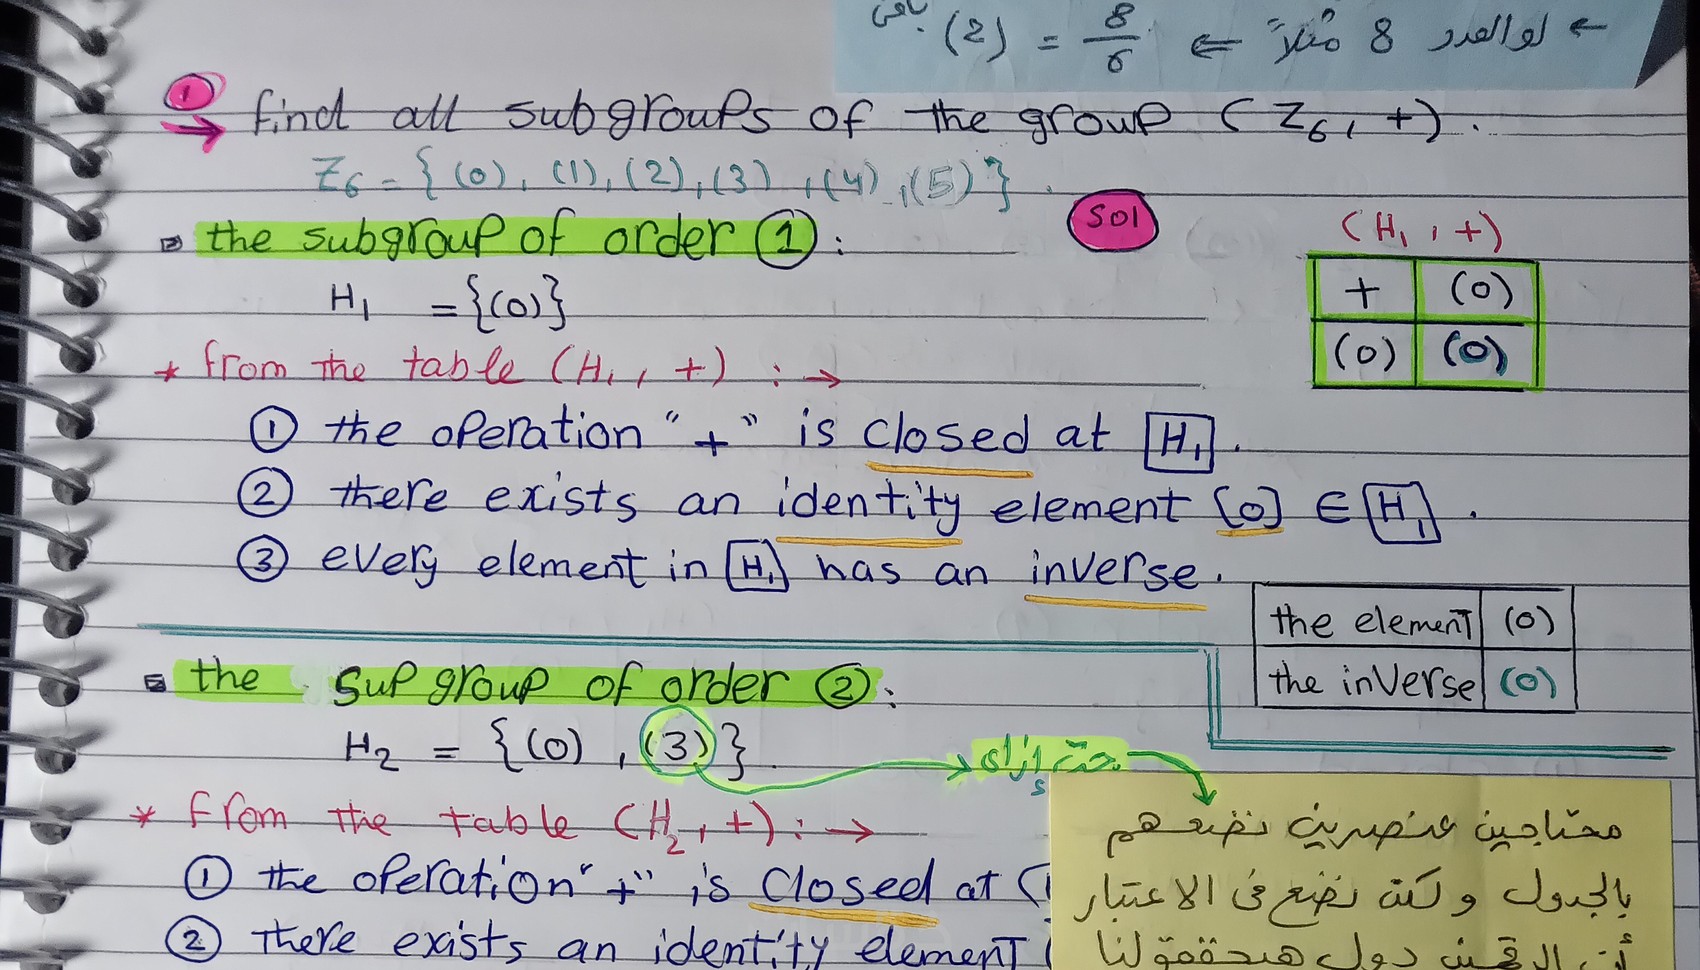 ← لو العدد 8 مثلاً ⇐ 8/6 = (2) باقى
1
→ find all subgroups of the group (Z6, +).
Z6 = {(0), (1), (2), (3), (4), (5)}.
the subgroup of order ①:
Sol
H1 = {(0)}
(H1, +)
+ (0)
(0) (0)
* from the table (H1, +) : →
① the operation "+" is closed at H1.
② there exists an identity element [0] ∈ H1.
③ every element in H1 has an inverse.
the element (0)
the inverse (0)
the sup group of order ②:
H2 = {(0), (3)}.
* from the table (H2, +) : →
محتاجين عنصرين نضعهم
بالجدول ولكن نضع فى الاعتبار
أن الرقمين دول هيحققولنا
① the operation "+" is closed at (
② there exists an identity element (